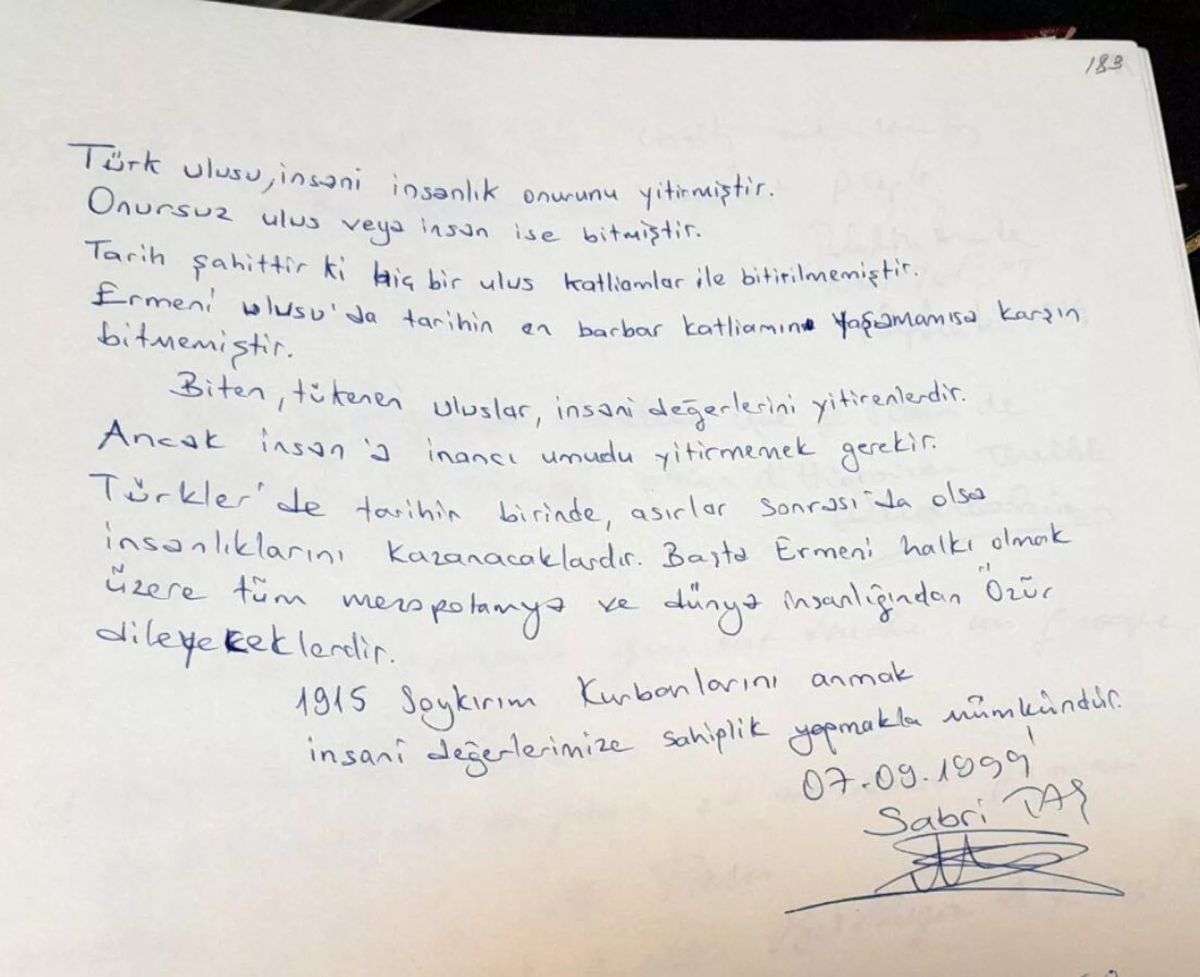 183
Türk ulusu, insani insanlık onurunu yitirmiştir.
Onursuz ulus veya insan ise bitmiştir.
Tarih şahittir ki hiç bir ulus katliamlar ile bitirilmemiştir.
Ermeni ulusu'da tarihin en barbar katliamını yaşamamısa karşın
bitmemiştir.
Biten, tükenen uluslar, insani değerlerini yitirenlerdir.
Ancak insan'a inancı umudu yitirmemek gerekir.
Türkler'de tarihin birinde, asırlar sonrası'da olsa
insanlıklarını kazanacaklardır. Başta Ermeni halkı olmak
üzere tüm mezopotamya ve dünya insanlığından "Özür
dileyeceklerdir.
1915 Soykırım Kurbanlarını anmak
insani değerlerimize sahiplik yapmakla mümkündür.
07.09.1999
Sabri TAŞ